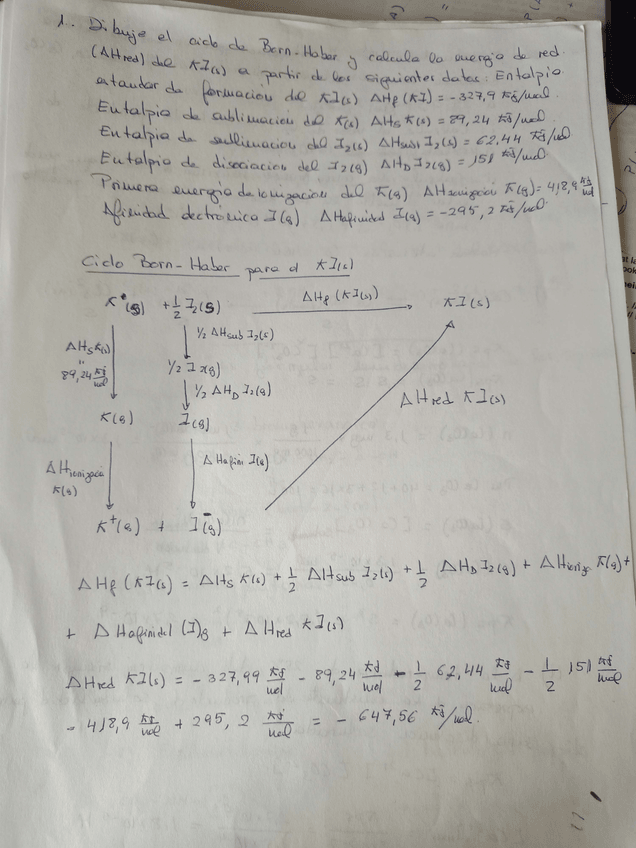 1. Dibuje el ciclo de Born-Haber y calcula la energía de red
(ΔHred) del KI(s) a partir de los siguientes datos: Entalpia
estandar de formación del KI(s) ΔHf (KI) = -327,9 KJ/mol.
Entalpía de sublimación del K(s) ΔHs K(s) = 89,24 KJ/mol.
Entalpia de sublimación del I2(s) ΔHsubl I2(s) = 62,44 KJ/mol.
Entalpia de disociación del I2(g) ΔHD I2(g) = 151 KJ/mol.
Primera energía de ionización del K(g) ΔHionización K(g) = 418,9 KJ/mol
Afinidad electrónica I(g) ΔHafinidad I(g) = -295,2 KJ/mol.
Ciclo Born-Haber para el KI(s)
K(s) + 1/2 I2(s) ΔHf (KI(s)) KI(s)
1/2 ΔHsub I2(s)
ΔHs K(s)
"
89,24 KJ/mol
1/2 I2(g)
1/2 ΔHD I2(g)
ΔHred KI(s)
K(g) I(g)
ΔHionización
K(g)
ΔHafini I(g)
K+(g) + I-(g)
ΔHf (KI(s) = ΔHs K(s) + 1/2 ΔHsub I2(s) + 1/2 ΔHD I2(g) + ΔHioniza K(g) +
+ ΔHafinidad (I)g + ΔHred KI(s)
ΔHred KI(s) = -327,99 KJ/mol - 89,24 KJ/mol - 1/2 62,44 KJ/mol - 1/2 151 KJ/mol
- 418,9 KJ/mol + 295,2 KJ/mol = - 647,56 KJ/mol.